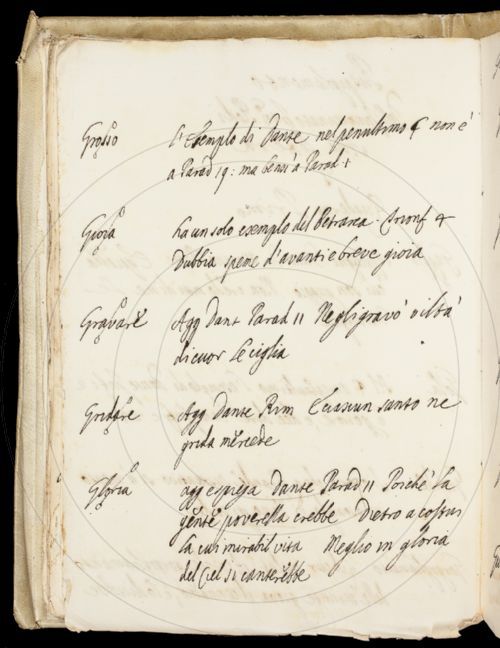 Grosso l'Esempio di Dante nel penultimo § non è
a Parad 19: ma bensì a Parad 1
Gioia ha un solo esempio del Petrarca. Trionf 4
Dubbia speme d'avanti e breve gioia
Gravare Agg Dant Parad 11 Negli gravò viltà
di cuor le ciglia
Gridare Agg Dante Rim Ciascun santo ne
grida merzede
Gloria agg espressa Dante Parad 11 Poichè la
gente poverella crebbe Dietro a costui
la cui mirabil vita Meglio in gloria
del Ciel si canterebbe